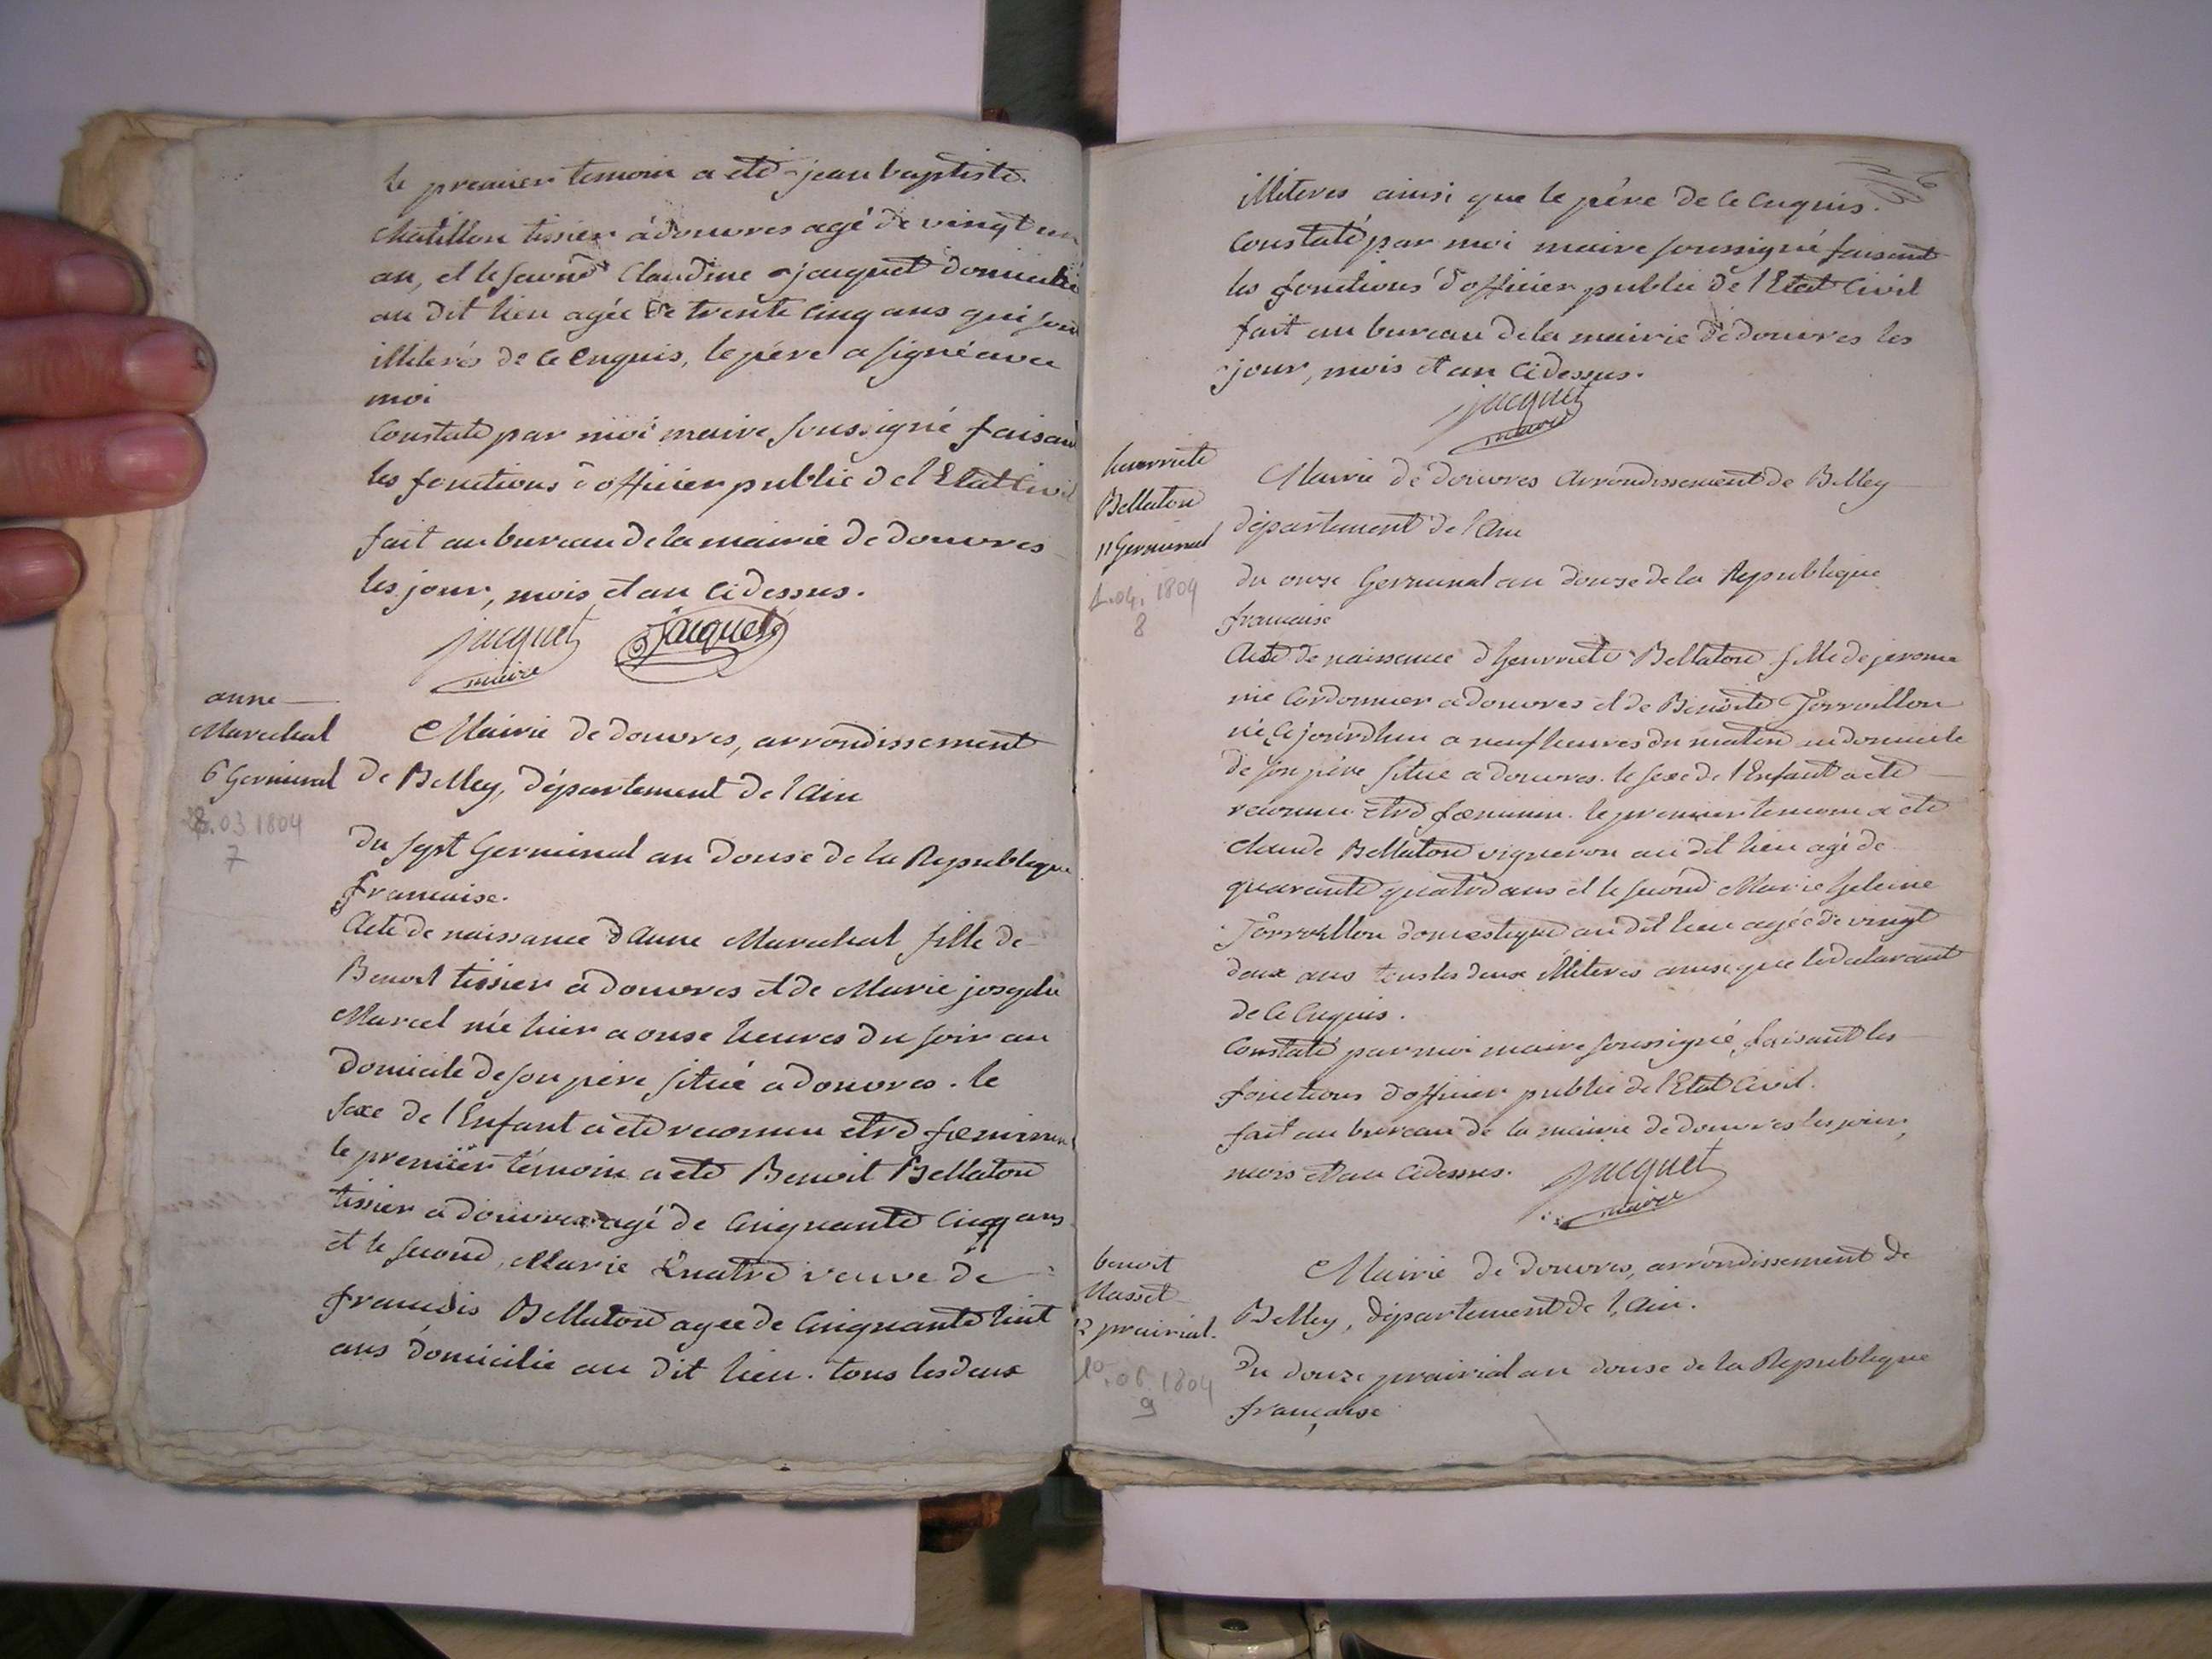 le premier temoin a été jean baptiste
chatillon tissier à douvres agé de vingt un
an, et le second Claudine jacquet domicilié
au dit lieu agée de trente cinq ans qui sont
illiterés de ce enquis, le père a signé avec
moi
Constaté par moi maire soussigné faisant
les fonctions d'officier public de l'Etat Civil
fait au bureau de la mairie de douvres
les jour, mois et an ci dessus.
jacquet Jacquet
maire
anne
Marechal
6 Germinal
28.03 1804
7
Mairie de douvres, arrondissement
de Belley, département de l'ain
du sept Germinal an douse de la Republique
francaise.
Acte de naissance d'anne Marechal fille de
Benoit tissier à douvres et de Marie josephe
Marcel née hier a onse heures du soir au
domicile de son père situé a douvres. le
sexe de l'Enfant a été reconnu etre fœminin
le premier témoin a été Benoit Bellaton
tissier a douvres agé de Cinquante Cinq ans
et le second, Marie Quatre veuve de
francois Bellaton agée de Cinquante huit
ans domicilié au dit lieu. tous les deux
6
illiteres ainsi que le père de ce enquis.
Constaté par moi maire soussigné faisant
les fonctions d'officier public de l'Etat Civil
fait au bureau de la mairie de douvres les
jour, mois et an ci dessus.
jacquet
maire
henriete
Bellaton
11 Germinal
1.04. 1804
8
Mairie de douvres Arrondissement de Belley
département de l'Ain
du onze Germinal an douze de la Republique
francaise
Acte de naissance d'henriete Bellaton fille de jerome
né Cordonnier a douvres et de Benoite Jorroillon
né Cejourdhui a neuf heures du matin au domicile
de son père situé a douvres. le sexe de l'Enfant a été
reconnu etre fœminin. le premier temoin a été
claude Bellaton vigneron au dit lieu agé de
quarante quatre ans et le second Marie heleine
Jorroillon domestique au dit lieu agée de vingt
deux ans tous les deux illiteres ainsi que le declarant
de ce enquis.
Constaté par moi maire soussigné faisant les
fonctions d'officier public de l'Etat Civil.
fait au bureau de la mairie de douvres les jour,
mois et an ci dessus. jacquet
maire
benoit
Masset
12 prairial.
1er.06.1804
9
Mairie de douvres, arrondissement de
Belley, département de l'Ain.
Du douze prairial an douse de la Republique
française